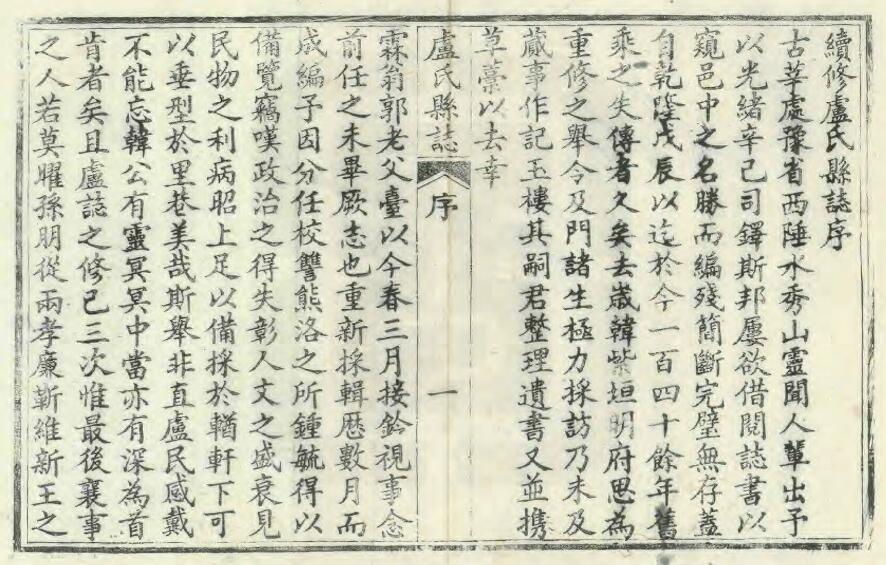 續修盧氏縣誌序
古莘處豫省西陲水秀山靈聞人輩出予
以光緒辛巳司鐸斯邦屢欲借閱誌書以
窺邑中之名勝而編殘簡斷完璧無存蓋
自乾隆戊辰以迄於今一百四十餘年舊
乘之失傳者久矣去歲韓紫垣明府思為
重修之舉令及門諸生極力採訪乃未及
蕆事作記玉樓其嗣君整理遺書又並攜
草藁以去幸
盧氏縣誌 序 一
霖翁郭老父臺以今春三月接鈐視事念
前任之未畢厥志也重新採輯歷數月而
成編予因分任校讐熊洛之所鍾毓得以
備覽竊嘆政治之得失彰人文之盛衰見
民物之利病昭上足以備採於輶軒下可
以垂型於里巷美哉斯舉非直盧民感戴
不能忘韓公有靈冥冥中當亦有深為首
肯者矣且盧誌之修已三次惟最後襄事
之人若莫曜孫朋從兩孝廉靳維新王之